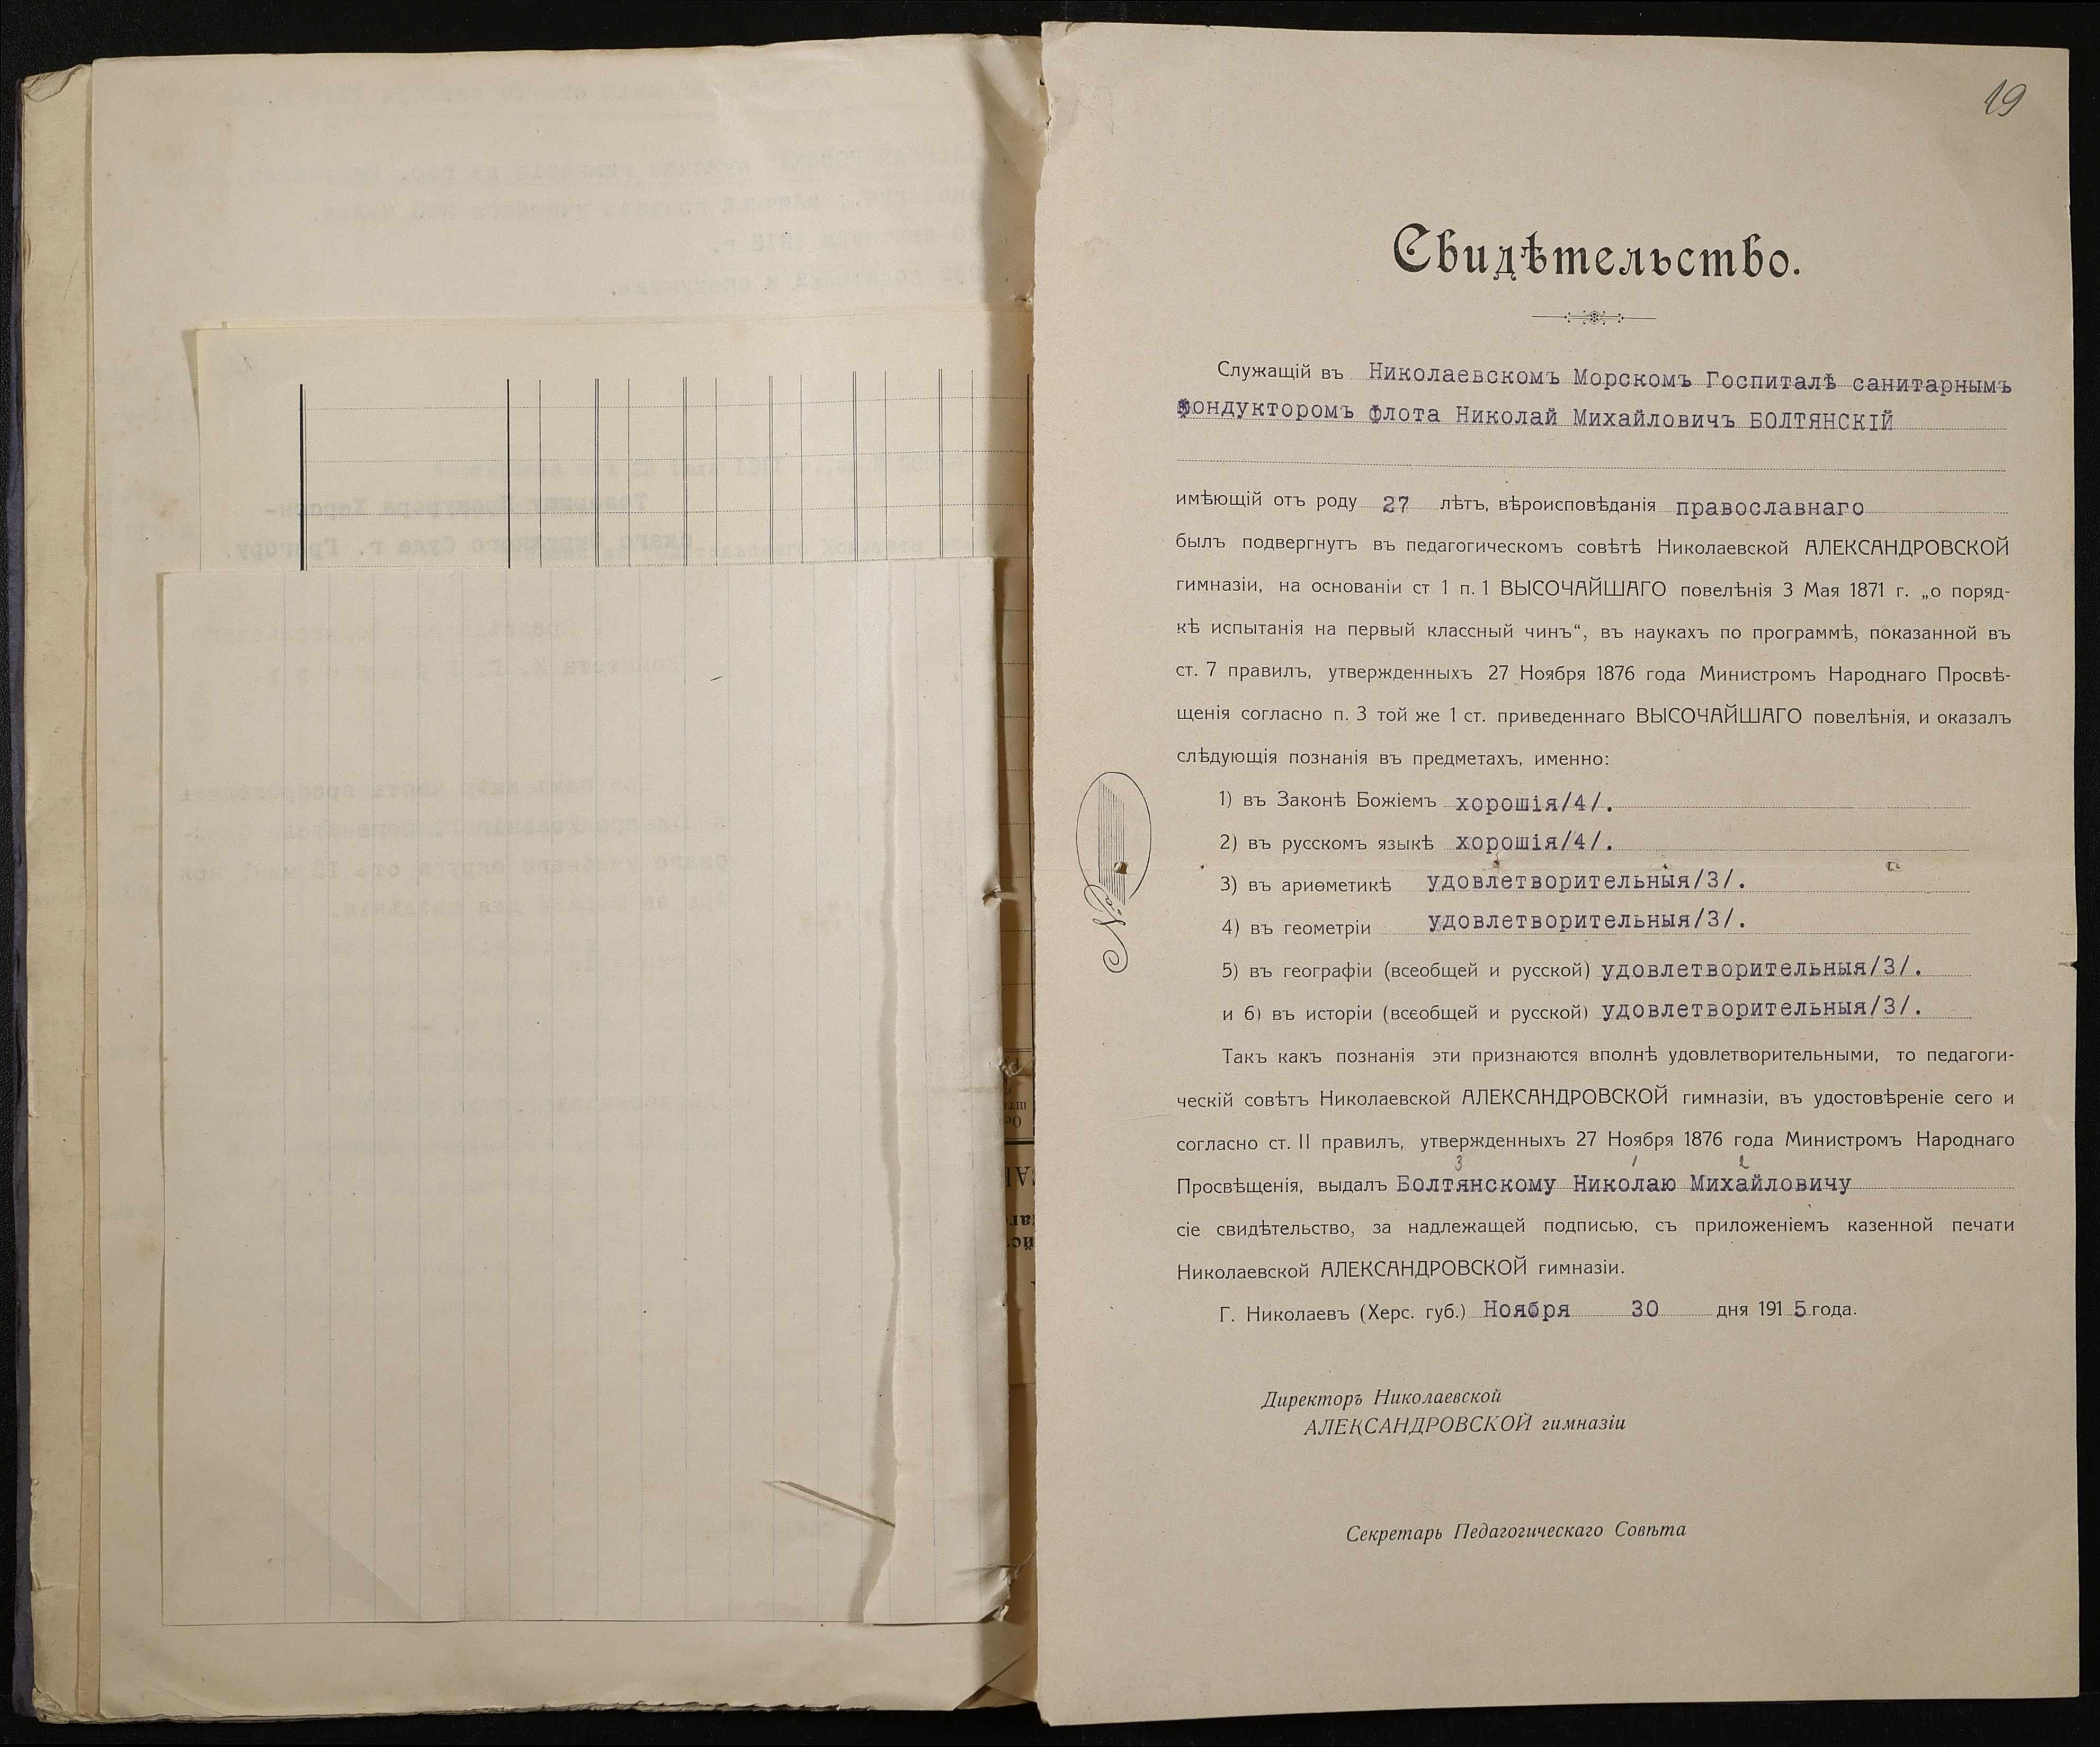 19
Свидѣтельство.
Служащій въ Николаевскомъ Морскомъ Госпиталѣ санитарнымъ
кондукторомъ флота Николай Михайловичъ БОЛТЯНСКІЙ
имѣющій отъ роду 27 лѣтъ, вѣроисповѣданія православнаго
былъ подвергнутъ въ педагогическомъ совѣтѣ Николаевской АЛЕКСАНДРОВСКОЙ
гимназіи, на основаніи ст 1 п. 1 ВЫСОЧАЙШАГО повелѣнія 3 Мая 1871 г. „о поряд-
кѣ испытанія на первый классный чинъ“, въ наукахъ по программѣ, показанной въ
ст. 7 правилъ, утвержденныхъ 27 Ноября 1876 года Министромъ Народнаго Просвѣ-
щенія согласно п. 3 той же 1 ст. приведеннаго ВЫСОЧАЙШАГО повелѣнія, и оказалъ
слѣдующія познанія въ предметахъ, именно:
1) въ Законѣ Божіемъ хорошія/4/.
2) въ русскомъ языкѣ хорошія/4/.
3) въ ариѳметикѣ удовлетворительныя/3/.
4) въ геометріи удовлетворительныя/3/.
5) въ географіи (всеобщей и русской) удовлетворительныя/3/.
и 6) въ исторіи (всеобщей и русской) удовлетворительныя/3/.
Такъ какъ познанія эти признаются вполнѣ удовлетворительными, то педагоги-
ческій совѣтъ Николаевской АЛЕКСАНДРОВСКОЙ гимназіи, въ удостовѣреніе сего и
согласно ст. II правилъ, утвержденныхъ 27 Ноября 1876 года Министромъ Народнаго
3 1 2
Просвѣщенія, выдалъ Болтянскому Николаю Михайловичу
сіе свидѣтельство, за надлежащей подписью, съ приложеніемъ казенной печати
Николаевской АЛЕКСАНДРОВСКОЙ гимназіи.
Г. Николаевъ (Херс. губ.) Ноября 30 дня 1915 года.
Директоръ Николаевской
АЛЕКСАНДРОВСКОЙ гимназіи
Секретарь Педагогическаго Совѣта
№